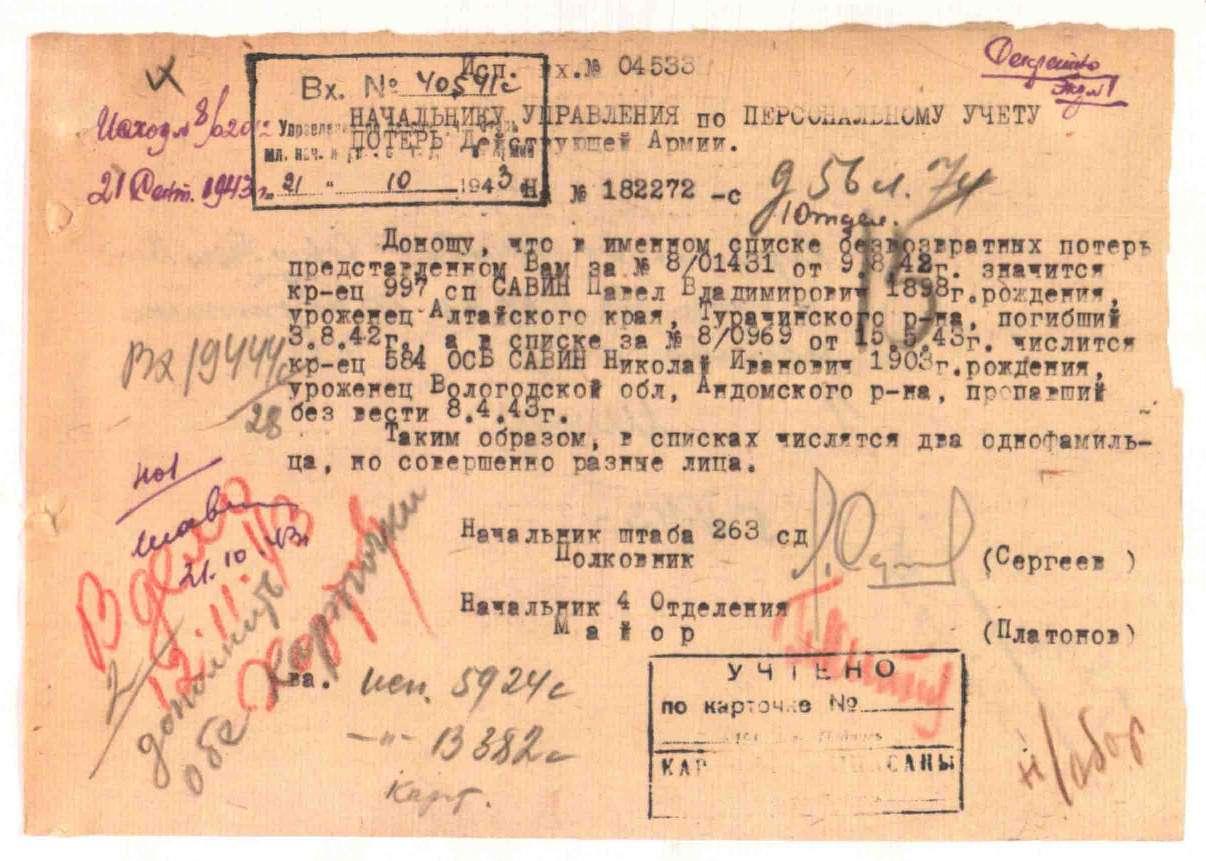 Исп. вх.№ 04533
Секретно
Вх. № 40541с
НАЧАЛЬНИКУ УПРАВЛЕНИЯ по ПЕРСОНАЛЬНОМУ УЧЕТУ
ПОТЕРЬ Действующей Армии.
21 " 10 1943
21 Сент. 1943г.
На № 182272 -с
д 56 л. 74
10тдел.
Доношу, что в именном списке безвозвратных потерь
представленном Вам за № 8/01431 от 9.8.42г. значится
кр-ец 997 сп САВИН Павел Владимирович 1898г.рождения,
уроженец Алтайского края, Турачинского р-на, погибший
3.8.42г., а в списке за № 8/0969 от 15.5.43г. числится
кр-ец 584 ОСБ САВИН Николай Иванович 1903г.рождения,
уроженец Вологодской обл, Андомского р-на, пропавший
без вести 8.4.43г.
Таким образом, в списках числятся два однофамиль-
ца, но совершенно разные лица.
Вх 19444с
28
21.10.43г
В дело
дополнить
обе карточки
Начальник штаба 263 сд
Полковник (Сергеев )
Начальник 4 Отделения
Майор (Платонов)
ва. исп. 5924с
—"— В 382с
Карт.
УЧТЕНО
по карточке №
КАР САНЫ
н/абор